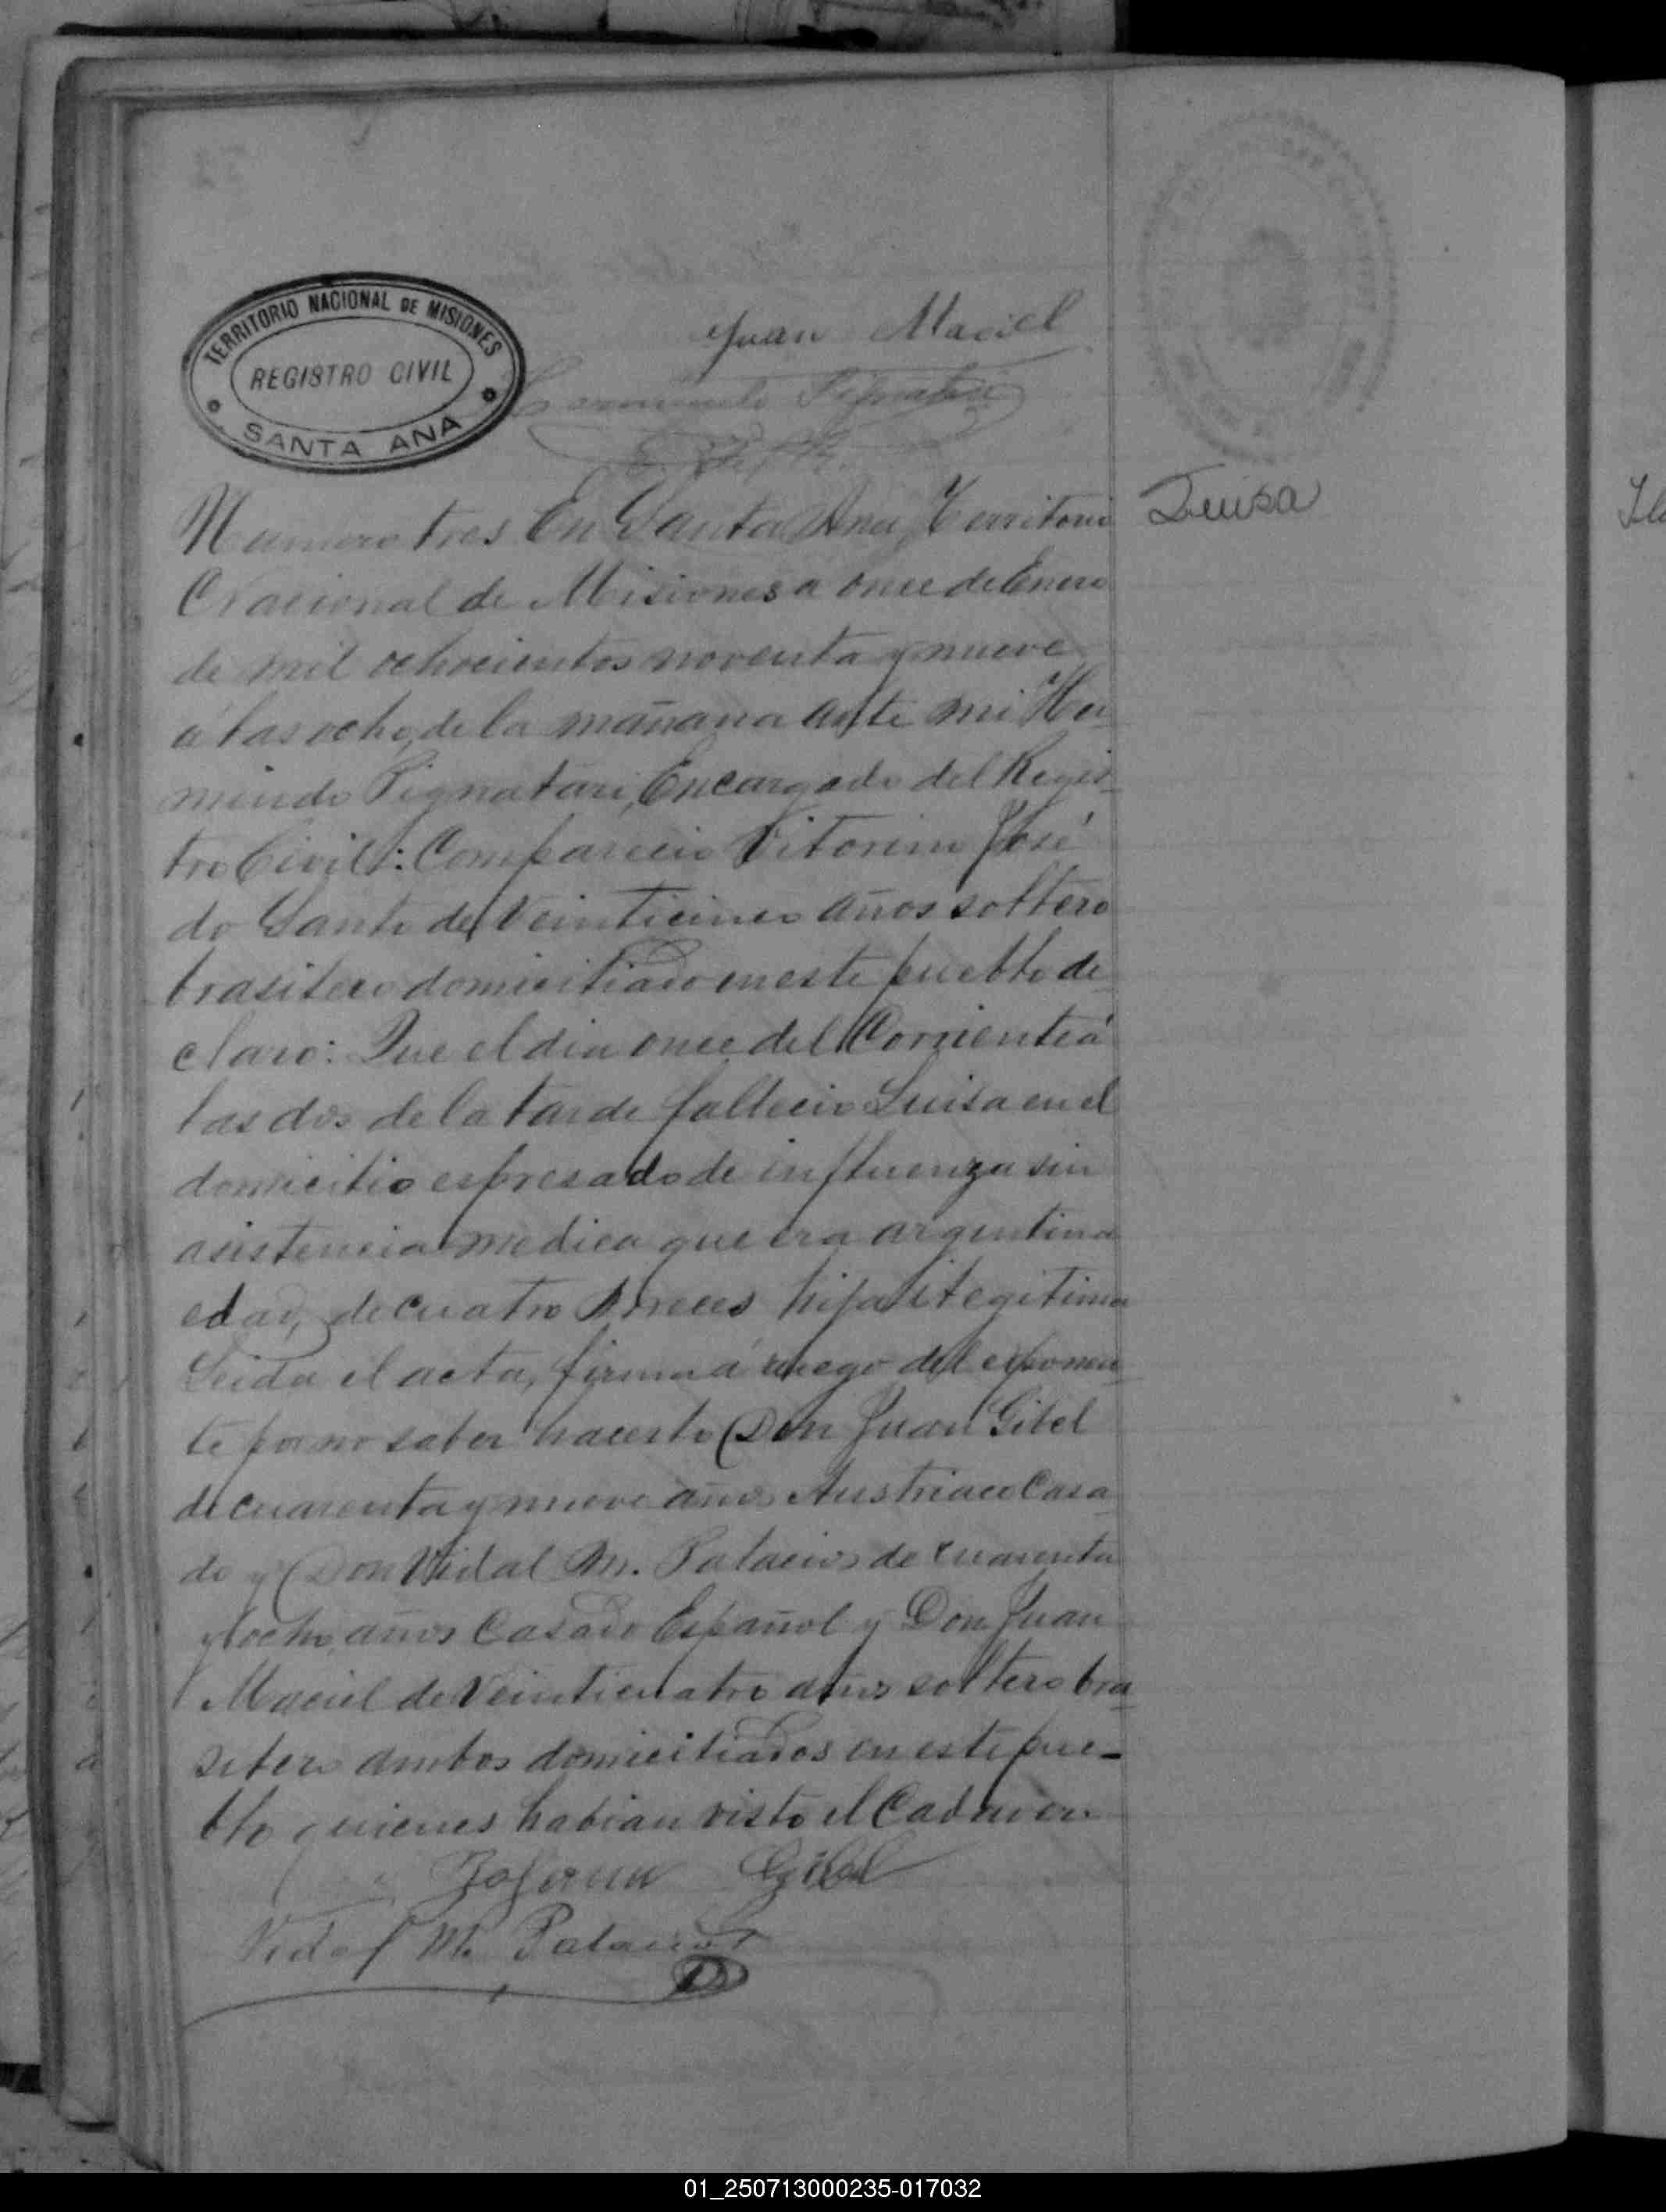 TERRITORIO NACIONAL DE MISIONES
REGISTRO CIVIL
SANTA ANA
Juan Maciel
Pignatari
Luisa
Numero tres En Santa Ana, Territorio
Nacional de Misiones a once de Enero
de mil ochocientos noventa y nueve
á las ocho de la mañana ante mi Her-
minido Pignatari, Encargado del Regis-
tro Civil: Comparecio Vitorino José
do Santo de Veinticinco años soltero
brasilero domiciliado en este pueblo de-
claro: Que el dia once del Corriente á
las dos de la tarde fallecio Luisa en el
domicilio espresado de influenza sin
asistencia medica que era argentina
edad, de cuatro meces hija ilegitima
Leida el acta, firma á ruego del esponen-
te por no saber hacerlo Don Juan Gibel
de cuarenta y nueve años Austriaco Casa-
do y Don Vidal M. Palacios de cuarenta
y ocho años Casado Español y Don Juan
Maciel de Veinticuatro años soltero bra-
silero ambos domiciliados en este pue-
blo quienes habian visto el Cadaver
Johann Gibel
Vidal M. Palacios
01_250713000235-017032